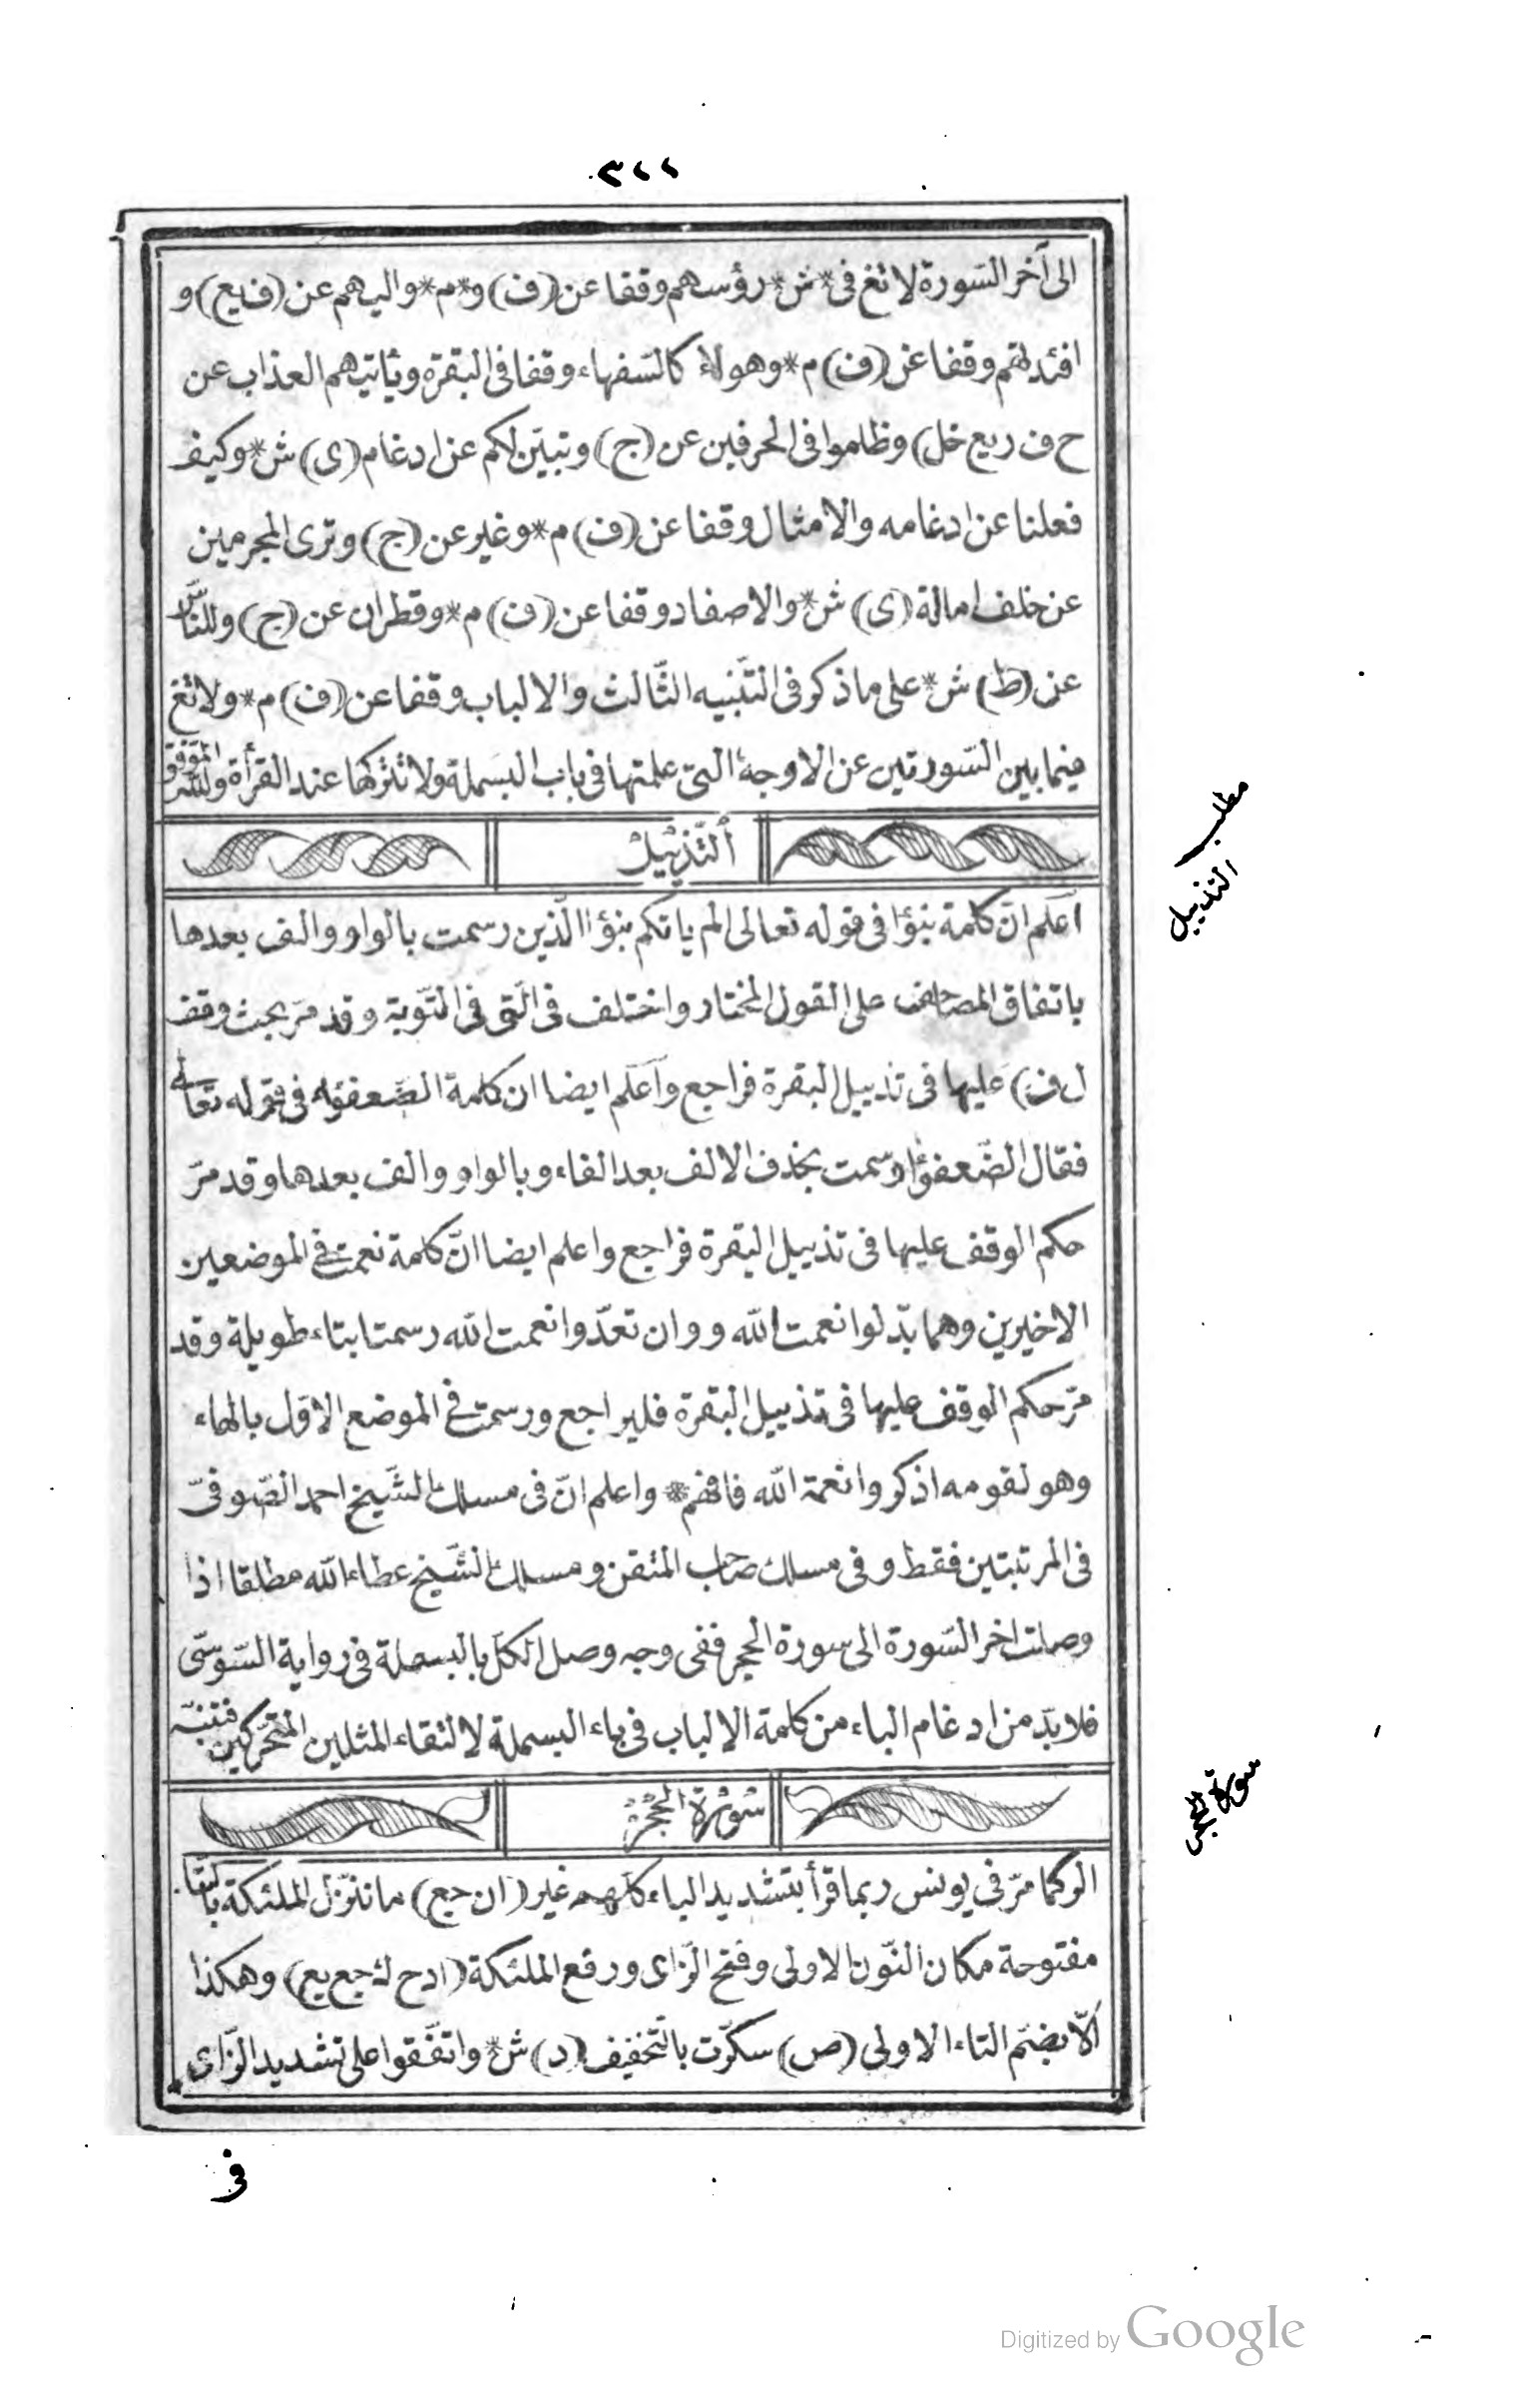 ٣٢٢
الى آخر السّورة لا تغ فى * ش * رؤسهم وقفا عن (ف) و * م * واليهم عن (ف يع) و
افئدتهم وقفا عن (ف) م * وهولاء كالسّفهاء وقفا فى البقرة وياتيهم العذاب عن
ح ف ر يع خل) وظلموا فى الحرفين عن (ج) وتبيّن لكم عن ادغام (ى) ش * وكيف
فعلنا عن ادغامه والامثال وقفا عن (ف) م * وغير عن (ج) وترى المجرمين
عن خلف امالة (ى) ش * والاصفاد وقفا عن (ف) م * وقطران عن (ج) وللنّاس
عن (ط) ش * على ما ذكر فى التّنبيه الثّالث والالباب وقفا عن (ف) م * ولا تغ
فيما بين السّورتين عن الاوجه التى علمتها فى باب البسملة ولا تتركها عند القرأة والله الموفّق
اَلتَّذْيِيْلُ
مطلب التذييل
اَعلم انّ كلمة نبؤا فى قوله تعالى الم ياتكم نبؤا الّذين رسمت بالواو والف بعدها
باتفاق المصاحف على القول المختار واختلف فى الّتى فى التّوبة وقد مرّ بحث وقف
ل ف) عليها فى تذييل البقرة فراجع وآعلم ايضا ان كلمة الضّعفؤا فى قوله تعالى
فقال الضّعفؤا رسمت بحذف الالف بعد الفاء وبالواو والف بعدها وقد مرّ
حكم الوقف عليها فى تذييل البقرة فراجع واعلم ايضا انّ كلمة نعمت فى الموضعين
الاخيرين وهما بدّلوا نعمت الله و وان تعدّوا نعمت الله رسمتا بتاء طويلة وقد
مرّ حكم الوقف عليها فى تذييل البقرة فليراجع ورسمت فى الموضع الاوّل بالهاء
وهو لقومه اذكروا نعمة الله فافهم * واعلم انّ فى مسلك الشّيخ احمد الصّوفىّ
فى المرتبتين فقط وفى مسلك صاحب المتقن ومسلك الشّيخ عطاء الله مطلقا اذا
وصلت اخر السّورة الى سورة الحجر ففى وجه وصل الكلّ بالبسملة فى رواية السّوسىّ
فلا بدّ من ادغام الباء من كلمة الالباب فى باء البسملة لالتقاء المثلين المتحرّكين فتنبّه
سُوْرَةُ الْحِجْرِ
سورة الحجر
الر كما مرّ فى يونس ربما قرأ بتشديد الباء كلّهم غير (ا ن جع) ما ننزّل الملئكة بالتّاء
مفتوحة مكان النّون الاولى وفتح الزّاى ورفع الملئكة (ا د ح ك جع يع) وهكذا
الّا بضمّ التاء الاولى (ص) سكّرت بالتّخفيف (د) ش * واتّفقوا على تشديد الزّاى
فى
Digitized by Google